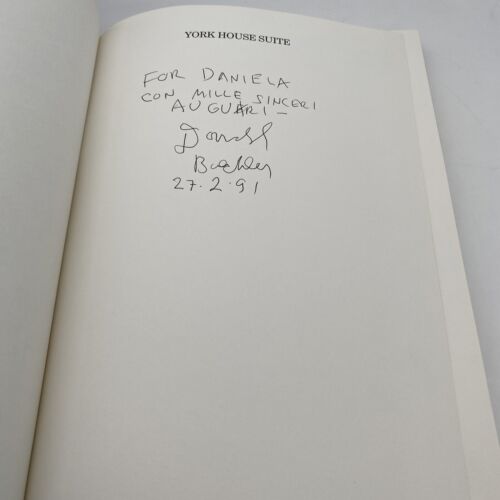 YORK HOUSE SUITE
FOR DANIELA
CON MILLE SINCERI
AUGURI -
Donald
27.2.91